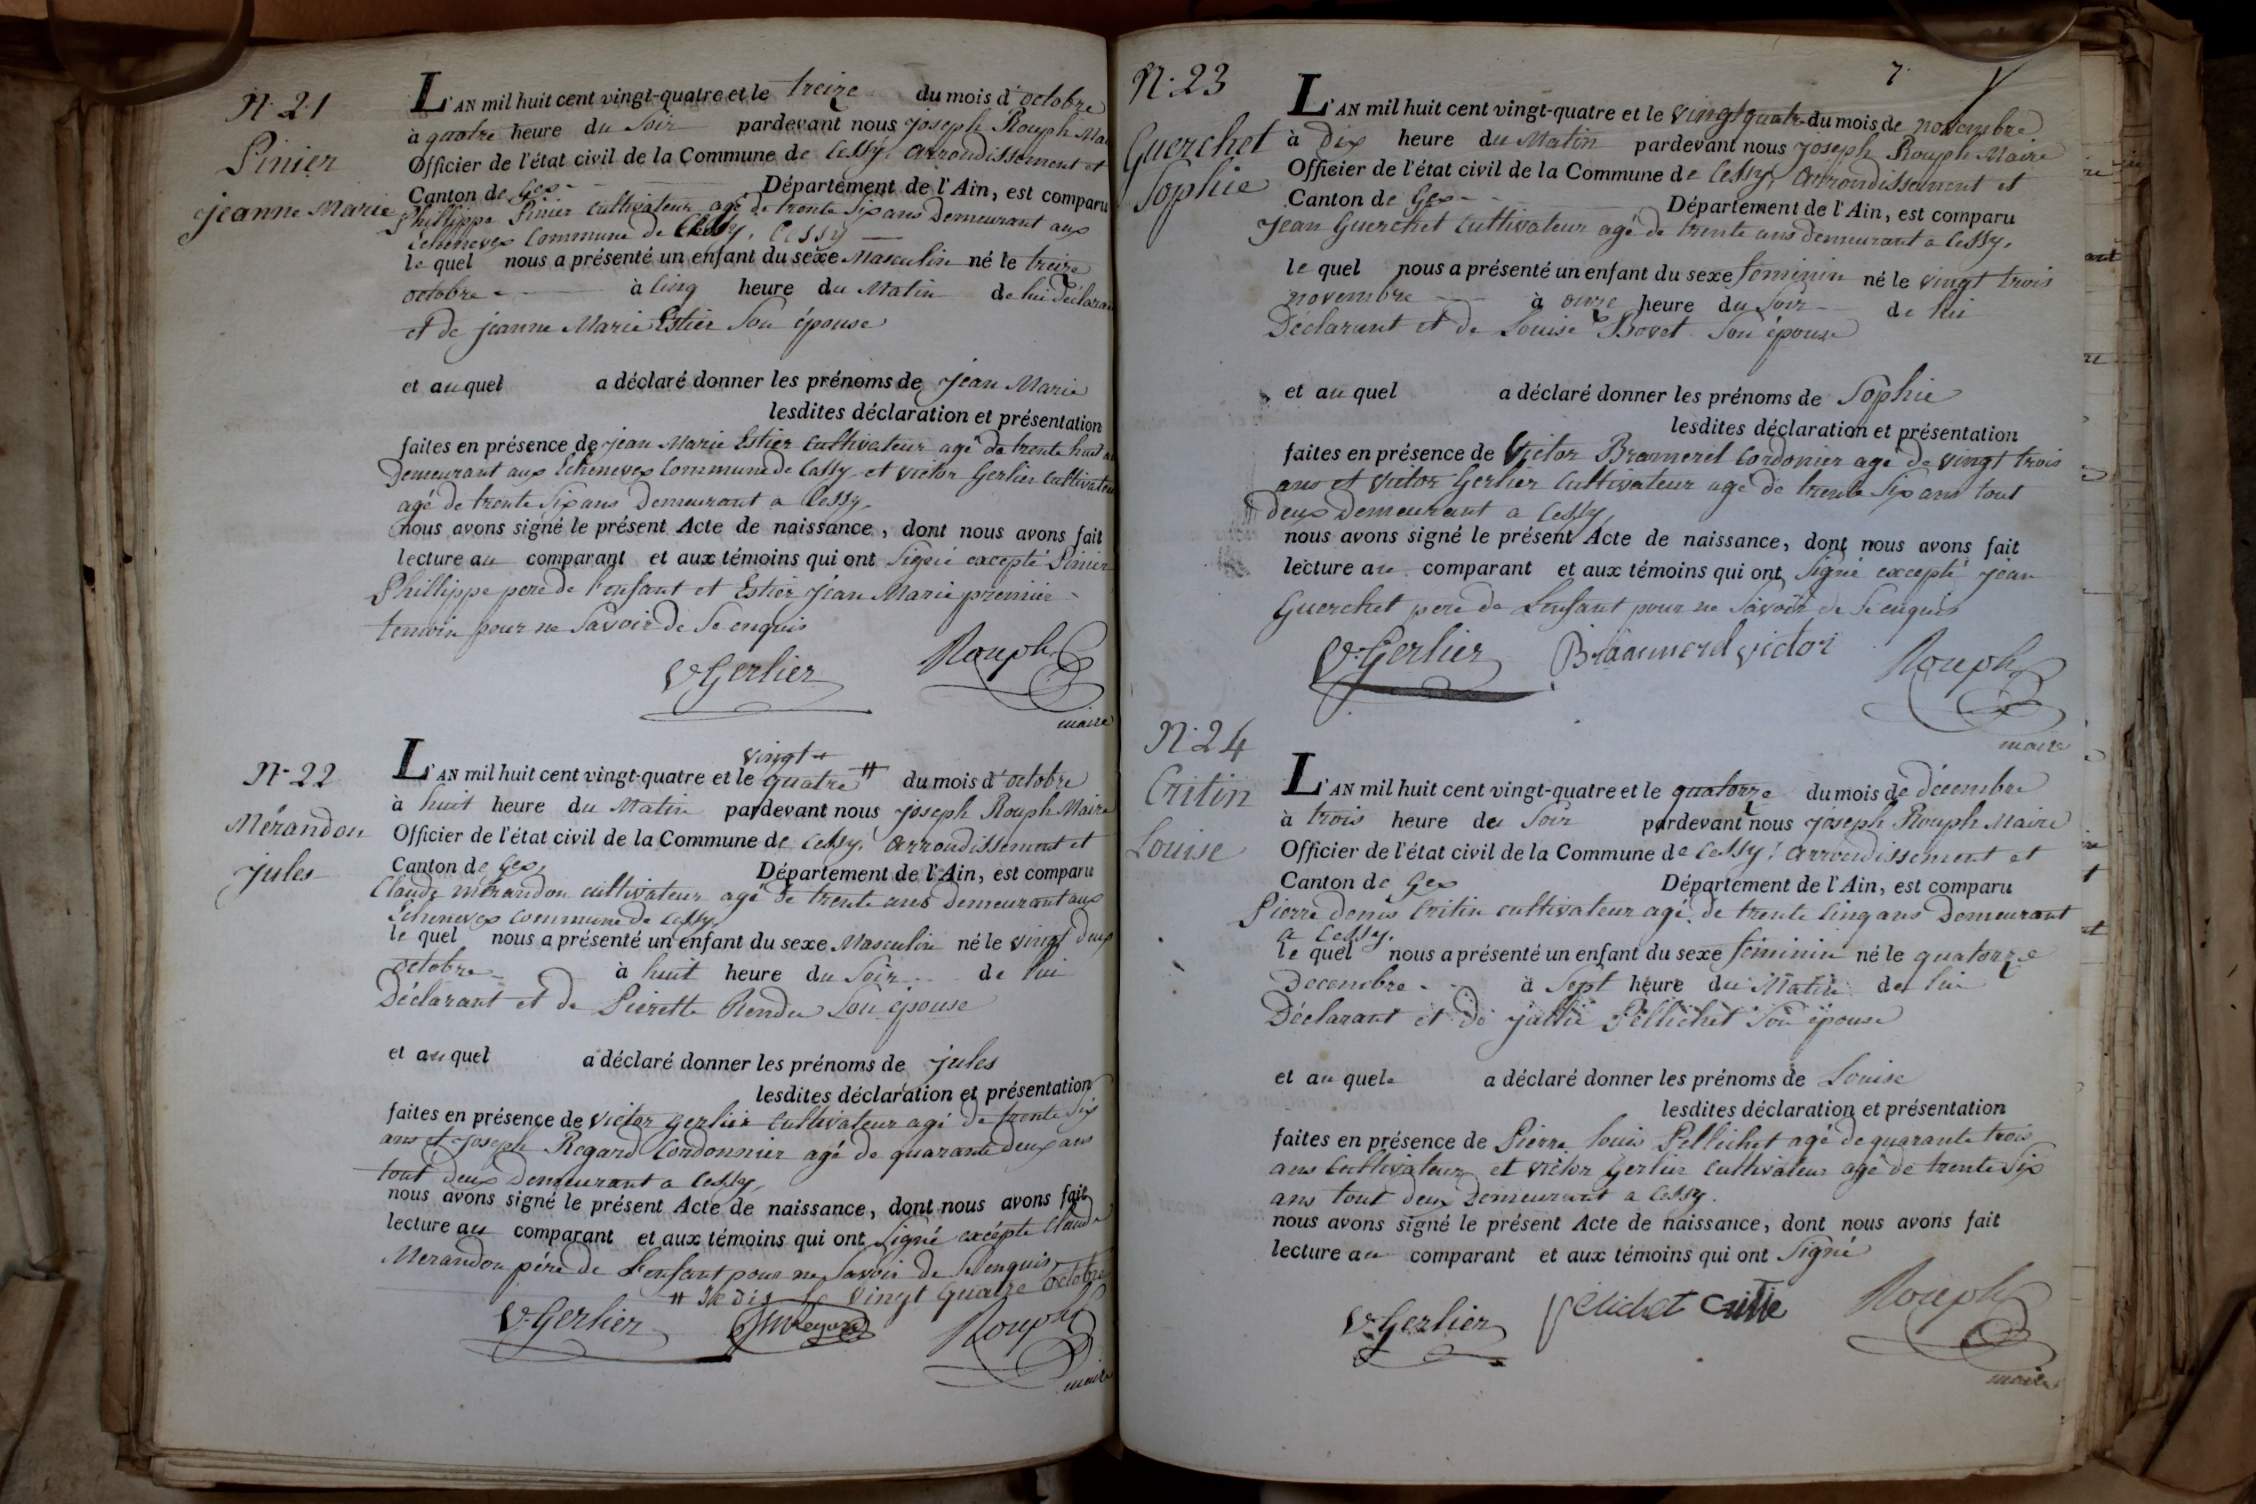 N. 21
Pinier
Jeanne Marie
L'AN mil huit cent vingt-quatre et le treize du mois d'octobre
à quatre heure du Soir pardevant nous Joseph Rouph Mai
Officier de l'état civil de la Commune de Cessy, arrondissement et
Canton de Gex - Département de l'Ain, est comparu
Phillippe Pinier Cultivateur agé de trente Six ans Demeurant aux
Echenevex Commune de Cessy, Cessy
le quel nous a présenté un enfant du sexe Masculin né le treize
octobre - à Cinq heure du Matin de lui Déclarant
et de jeanne Marie Estier Son épouse
et au quel a déclaré donner les prénoms de Jean Marie
lesdites déclaration et présentation
faites en présence de jean Marie Estier Cultivateur agé de trente huit
Demeurant aux Echenevex Commune de Cessy et victor Gerlier Cultivateur
agé de trente Six ans Demeurant a Cessy,
nous avons signé le présent Acte de naissance, dont nous avons fait
lecture au comparant et aux témoins qui ont Signé excepté Pinier
Phillippe pere de l'enfant et Estier Jean Marie premier
temoin pour ne Savoir de Se enquis
V. Gerlier Rouph
maire
N. 22
Mérandon
Jules
vingt +
L'AN mil huit cent vingt-quatre et le quatre # du mois d'octobre
à huit heure du Matin pardevant nous Joseph Rouph Maire
Officier de l'état civil de la Commune de Cessy, arrondissement et
Canton de Gex, Département de l'Ain, est comparu
Claude mérandon cultivateur agé de trente ans Demeurant aux
Echenevex Commune de Cessy,
le quel nous a présenté un enfant du sexe Masculin né le vingt deux
octobre - à huit heure du Soir de lui
Déclarant et de Pierette Rendu Son épouse
et au quel a déclaré donner les prénoms de Jules
lesdites déclaration et présentation
faites en présence de victor gerlier Cultivateur agé de trente Six
ans et Joseph Regard Cordonnier agé de quarante deux ans
tout deux Demeurant a Cessy,
nous avons signé le présent Acte de naissance, dont nous avons fait
lecture au comparant et aux témoins qui ont Signé excépté Claude
Merandon pére de L'enfant pour ne Savoir de Se enquis
# Je dis le vingt quatre octobre
V. Gerlier Rouph
maire
7.
N. 23
Guerchet
Sophie
L'AN mil huit cent vingt-quatre et le vingt quatre du mois de novembre
à Dix heure du Matin pardevant nous Joseph Rouph Maire
Officier de l'état civil de la Commune de Cessy, arrondissement et
Canton de Gex - Département de l'Ain, est comparu
Jean Guerchet Cultivateur agé de trente ans demeurant a Cessy,
le quel nous a présenté un enfant du sexe feminin né le vingt trois
novembre à onze heure du Soir de lui
Déclarant et de Louise Bovet Son épouse
et au quel a déclaré donner les prénoms de Sophie
lesdites déclaration et présentation
faites en présence de Victor Bramerel Cordonier agé de vingt trois
ans et victor Gerlier Cultivateur agé de trente Six ans tout
deux Demeurant a Cessy,
nous avons signé le présent Acte de naissance, dont nous avons fait
lecture au comparant et aux témoins qui ont Signé excepté jean
Guerchet pere de L'enfant pour ne Savoir de Se enquis
V. Gerlier Braaumerd victor Rouph
maire
N. 24
Critin
Louise
L'AN mil huit cent vingt-quatre et le quatorze du mois de décembre
à trois heure du Soir pardevant nous Joseph Rouph Maire
Officier de l'état civil de la Commune de Cessy, arrondissement et
Canton de Gex Département de l'Ain, est comparu
Pierre denis Critin cultivateur agé de trente Cinq ans Demeurant
a Cessy.
le quel nous a présenté un enfant du sexe féminin né le quatorze
Decembre - à Sept heure du Matin de lui
Déclarant et de Jullie Pellichet Son épouse
et au quele a déclaré donner les prénoms de Louise
lesdites déclaration et présentation
faites en présence de Pierre Louis Pellichet agé de quarante trois
ans Cultivateur et victor Gerlier Cultivateur agé de trente Six
ans tout deux Demeurant a Cessy.
nous avons signé le présent Acte de naissance, dont nous avons fait
lecture au comparant et aux témoins qui ont Signé
V. Gerlier Pelichet Rouph
maire